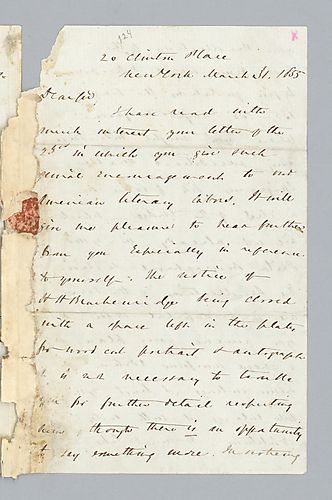 124
20 Clinton Place
New York March 31. 1855
Dear Sir
I have read with
much interest your letter of the
23rd in which you give such
genial encouragement to
American literary labors. It will
give me pleasure to hear further
from you Especially in reference
to yourself. The notice of
H H Brackenridge being closed
with a space left in the plates
for wood cut portrait & autograph
it is not necessary to trouble
you for further detail respecting
him, though there is an opportunity
to say something more. In noticing